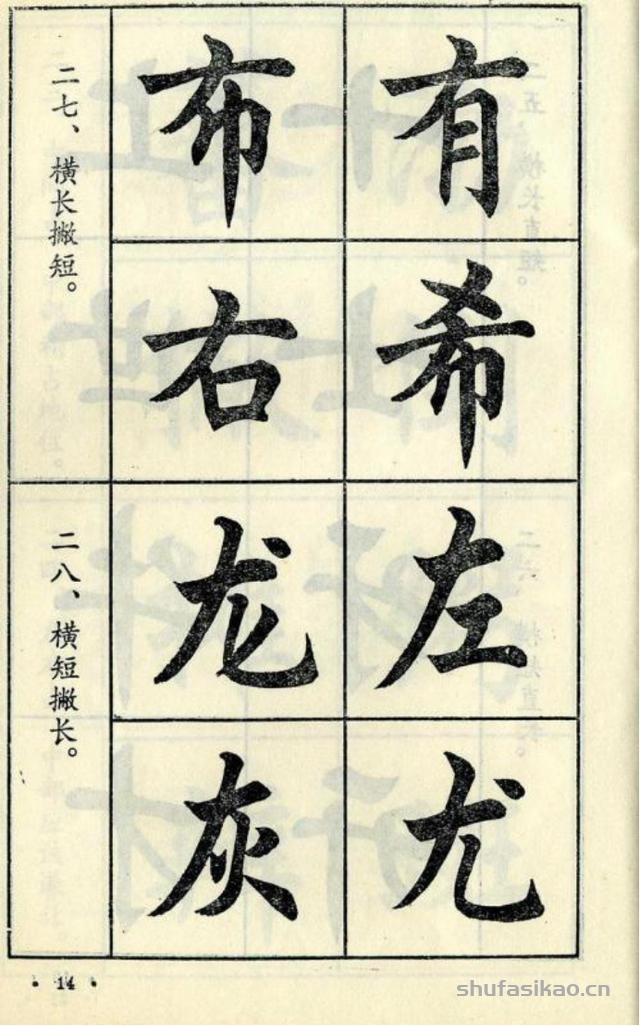 有希左尤
布右龙灰
二七、横长撇短。
二八、横短撇长。
• 14 •
shufasikao.cn